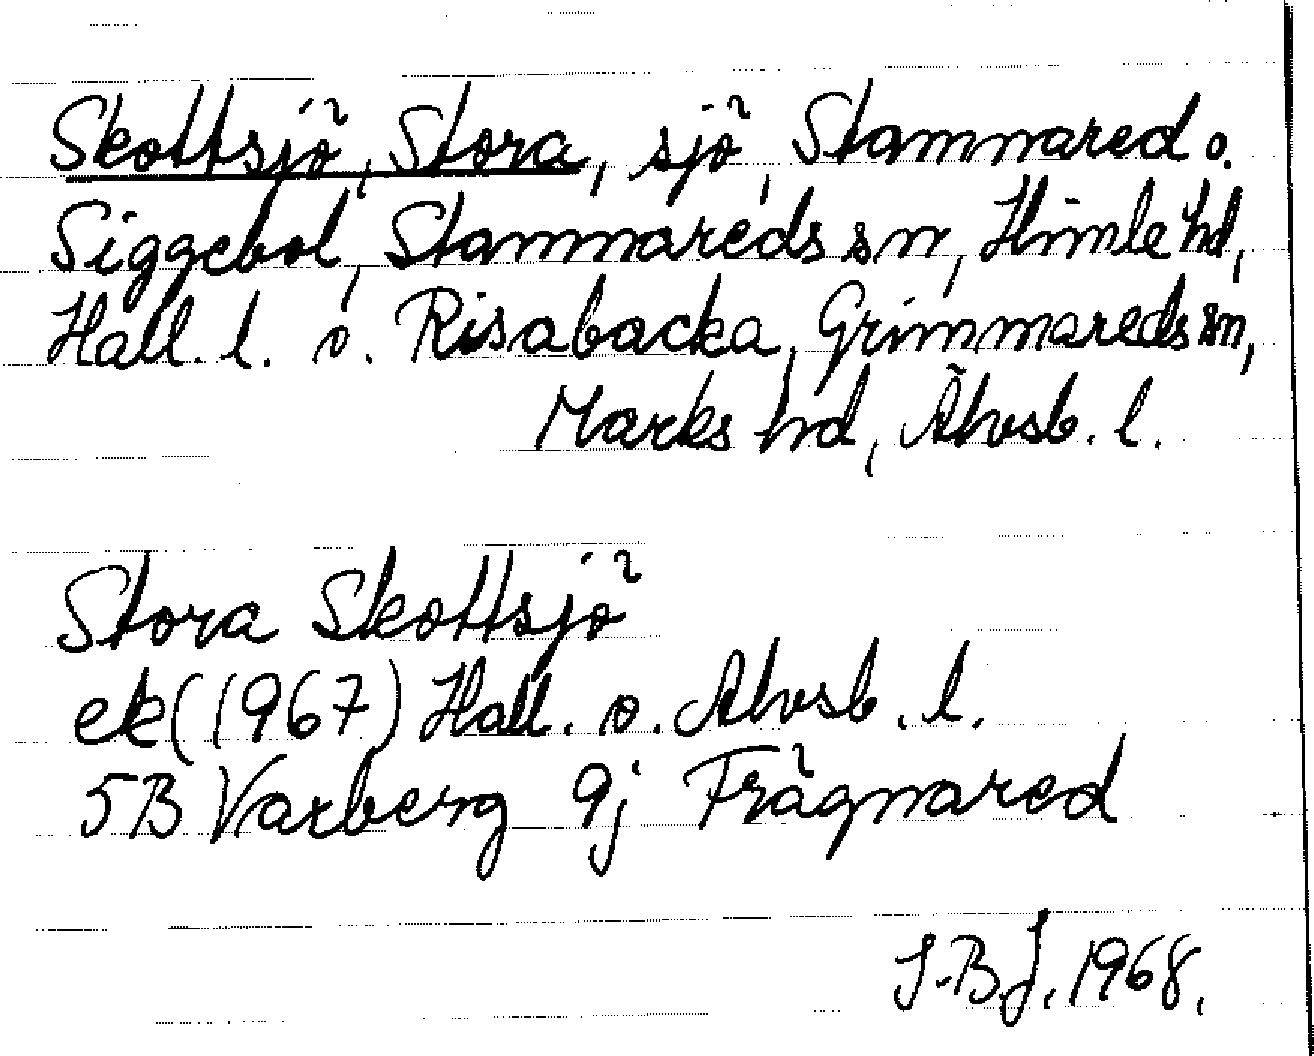 Skottsjö, Stora, sjö, Stamnared o.
Siggebol, Stamnareds sn, Himle hd,
Hall. l. o. Risabacka, Grimmareds sn,
Marks hd, Älvsb. l.
Stora Skottsjö
ek (1967) Hall. o. Älvsb. l.
5B Varberg 9j Frägnared
S.B.J. 1968.